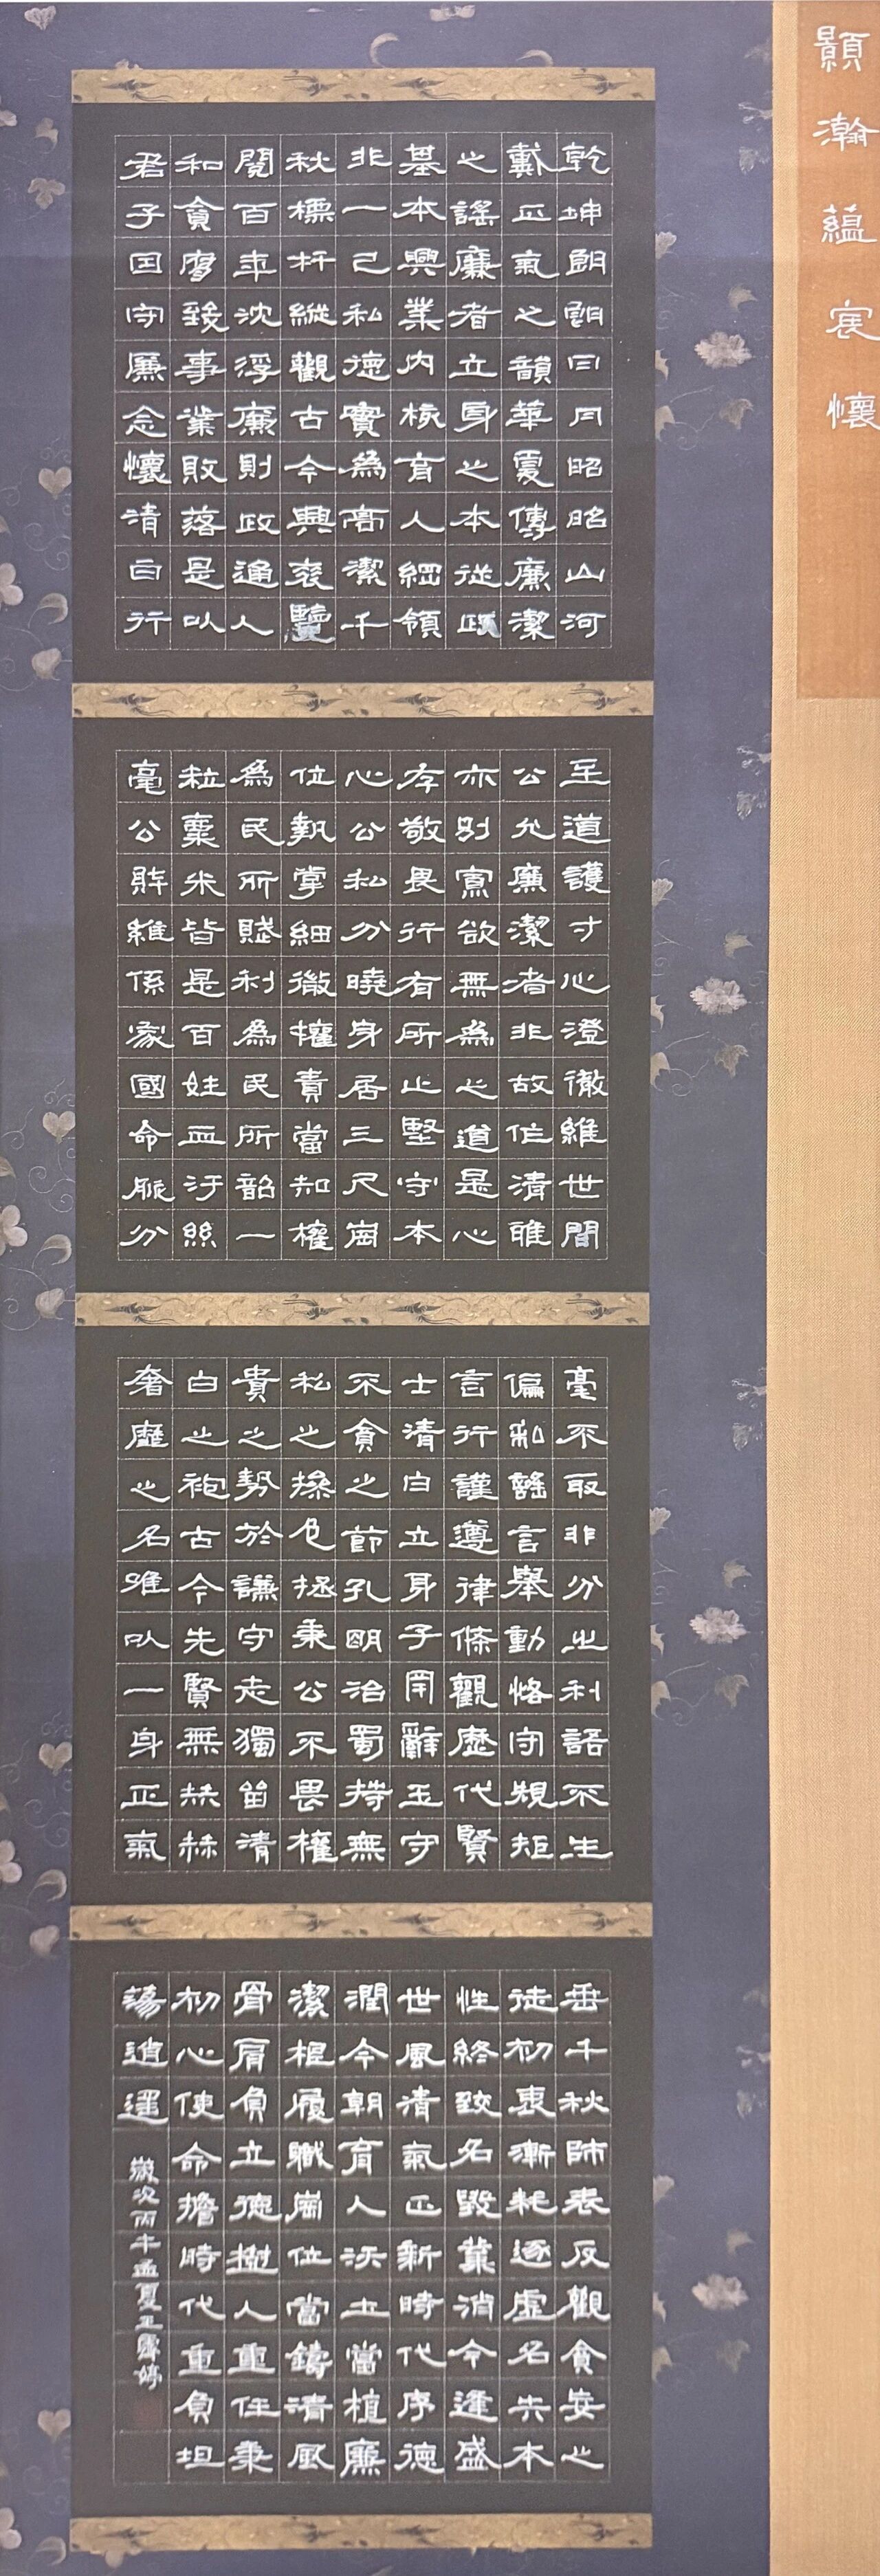 顥瀚蘊宸懷
乾坤朗朗日月昭昭山河
戴正氣之韻華夏傳廉潔
之謠廉者立身之本從政
基本興業內核育人綱領
非一己私德實為高潔千
秋標杆縱觀古今興衰覽
閱百年沈浮廉則政通人
和貪腐致事業敗落是以
君子固守廉念懷清白行
至道護寸心澄徹維世間
公允廉潔者非故作清雅
亦別寡欲無為之道是心
存敬畏行有所止堅守本
心公私分曉身居三尺崗
位執掌細微權責當知權
為民所賦利為民所韶一
粒粟米皆是百姓血汗絲
毫公財維係家國命脈分
毫不取非分之利語不生
偏私謠言舉動恪守規矩
言行謹遵律條觀歷代賢
士清白立身子罕辭玉守
不貪之節孔明治蜀持無
私之操包拯秉公不畏權
貴之勢於謙守志獨留清
白之袍古今先賢無赫赫
奢靡之名唯以一身正氣
垂千秋師表反觀貪妄之
徒初衷漸耗逐虛名失本
性終致名毀業消今逢盛
世風清氣正新時代序德
潤今朝育人沃土當植廉
潔根履職崗位當鑄清風
骨肩負立德樹人重任秉
初心使命擔時代重負坦
蕩逍遙
歲次丙午孟夏王露婷